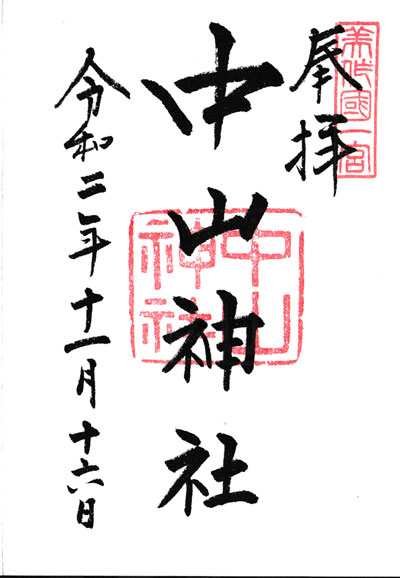 奉拝
美作國一宮
中山神社
中山神社
令和二年十一月十六日